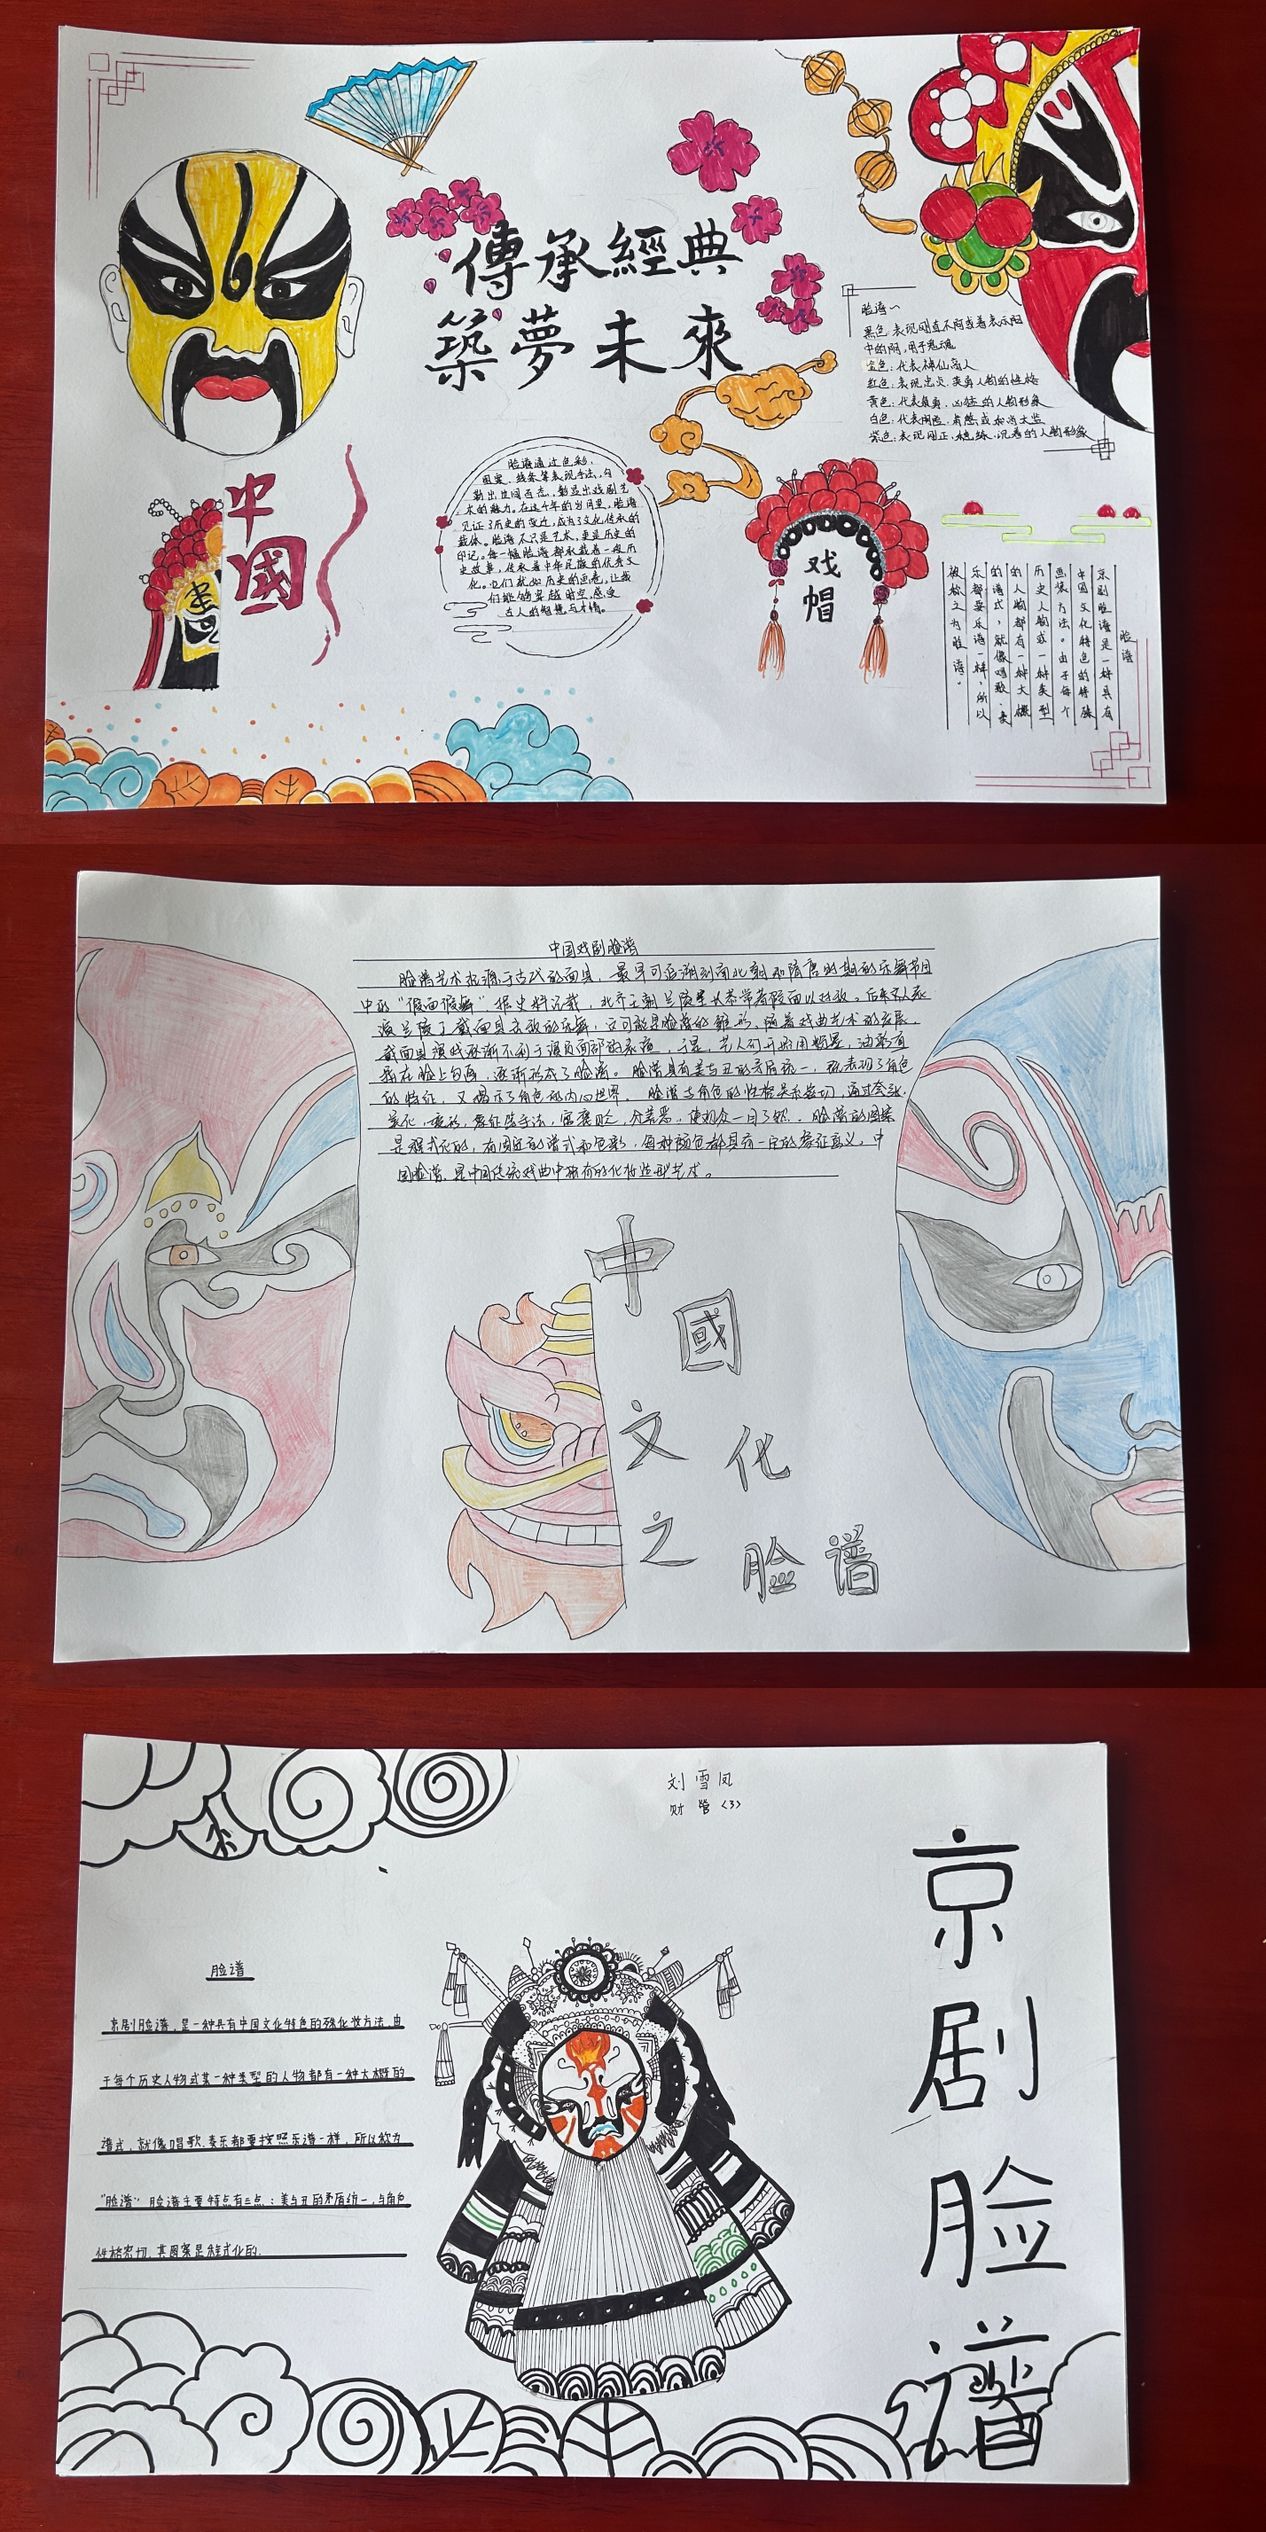 傳承經典
築夢未來
脸谱~
黑色:表现刚直不阿或者表示阳
中的阴,用于鬼魂
金色:代表神仙高人
红色:表现忠贞、英勇人物的性格
黄色:代表骁勇、凶猛的人物形象
白色:代表阴险、
紫色:表现刚正、稳练、沉着的人物形象
中
國
脸谱通过色彩、
图案、线条等表现手法,勾
勒出世间百态,彰显出戏剧艺
术的魅力。在这千年的岁月里,脸谱
见证了历史的变迁,成为了文化传承的
载体。脸谱不只是艺术,更是历史的
印记。每一幅脸谱都承载着一段历
史故事,传承着中华民族的优秀文
化。它们就如历史的画卷,让我
们能够穿越时空,感受
古人的智慧与才情。
戏
帽
脸谱
京剧脸谱是一种具有
中国文化特色的特殊
化妆方法。由于每个
历史人物或一种类型
的人物都有一种大概
的谱式,就像唱歌、奏
乐都要乐谱一样,所以
被称之为脸谱。
中国戏剧脸谱
脸谱艺术起源于古代的面具,最早可追溯到南北朝和隋唐时期的乐舞节目
中的“假面假舞”据史料记载,北齐王朝兰陵王长恭常着假面以对敌。后来
演兰陵王戴面具杀敌的乐舞,这可能是脸谱的雏形,随着戏曲艺术的发展,
戴面具演戏逐渐不利于演员面部的表演,于是,艺人们开始用粉墨,油彩直
接在脸上勾画,逐渐形成了脸谱。脸谱具有美与丑的矛盾统一,既表现了角色
的特征,又揭示了角色的内心世界。脸谱与角色的性格关系密切,通过夸张、
变化,变形,象征等手法,寓褒贬,分善恶,使观众一目了然。脸谱的图案
是程式化的,有固定的谱式和色彩,每种颜色都具有一定的象征意义,中
国脸谱,是中国传统戏曲中独有的化妆造型艺术。
中
國
文
化
之
脸谱
刘雪凤
财管(3)
脸谱
京剧脸谱,是一种具有中国文化特色的殊化妆方法.由
于每个历史人物或某一种类型的人物都有一种大概的
谱式,就像唱歌、奏乐都要按照乐谱一样,所以称为
“脸谱”.脸谱主要特点有三点:美与丑的矛盾统一,与角色
性格密切,其图案是程式化的.
京
剧
脸
谱